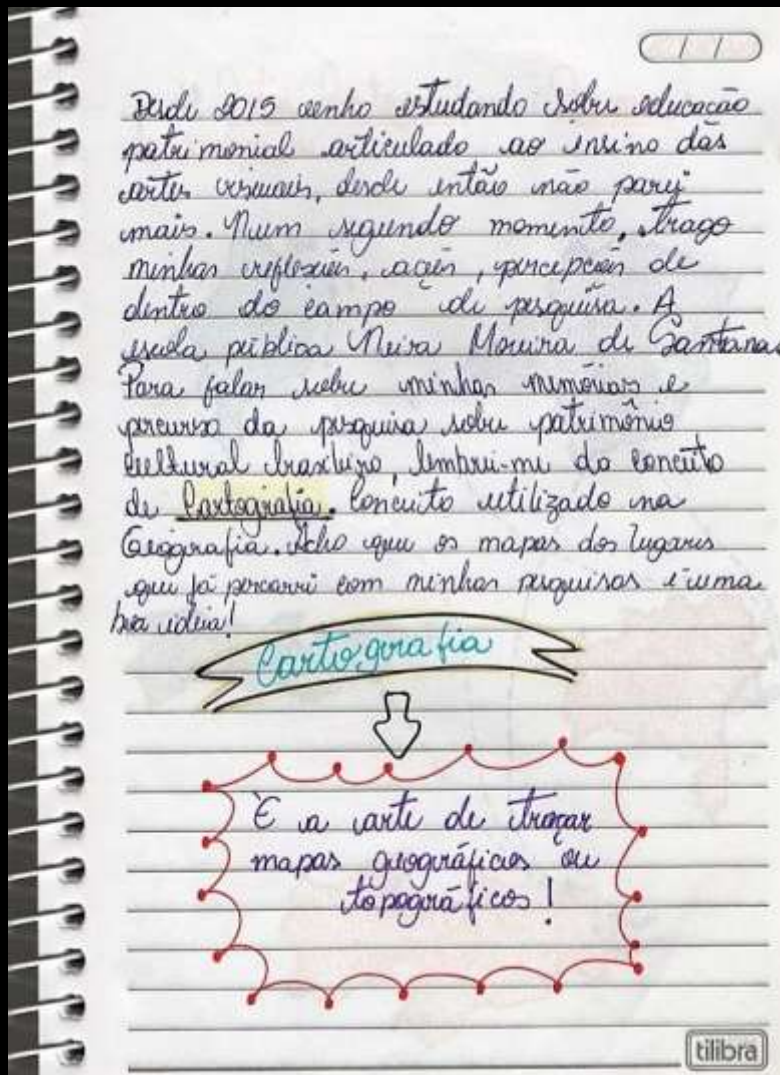 / /
Desde 2015 venho estudando sobre educação
patrimonial articulado ao ensino das
artes visuais, desde então não parei
mais. Num segundo momento, trago
minhas reflexões, ações, percepções de
dentro do campo de pesquisa. A
escola pública Neira Moreira de Santana.
Para falar sobre minhas memórias e
percurso da pesquisa sobre patrimônio
cultural brasileiro, lembrei-me do conceito
de Cartografia. Conceito utilizado na
Geografia. Acho que os mapas dos lugares
que já percorri com minhas pesquisas é uma
boa ideia!
Cartografia
É a arte de traçar
mapas geográficos ou
topográficos!
tilibra